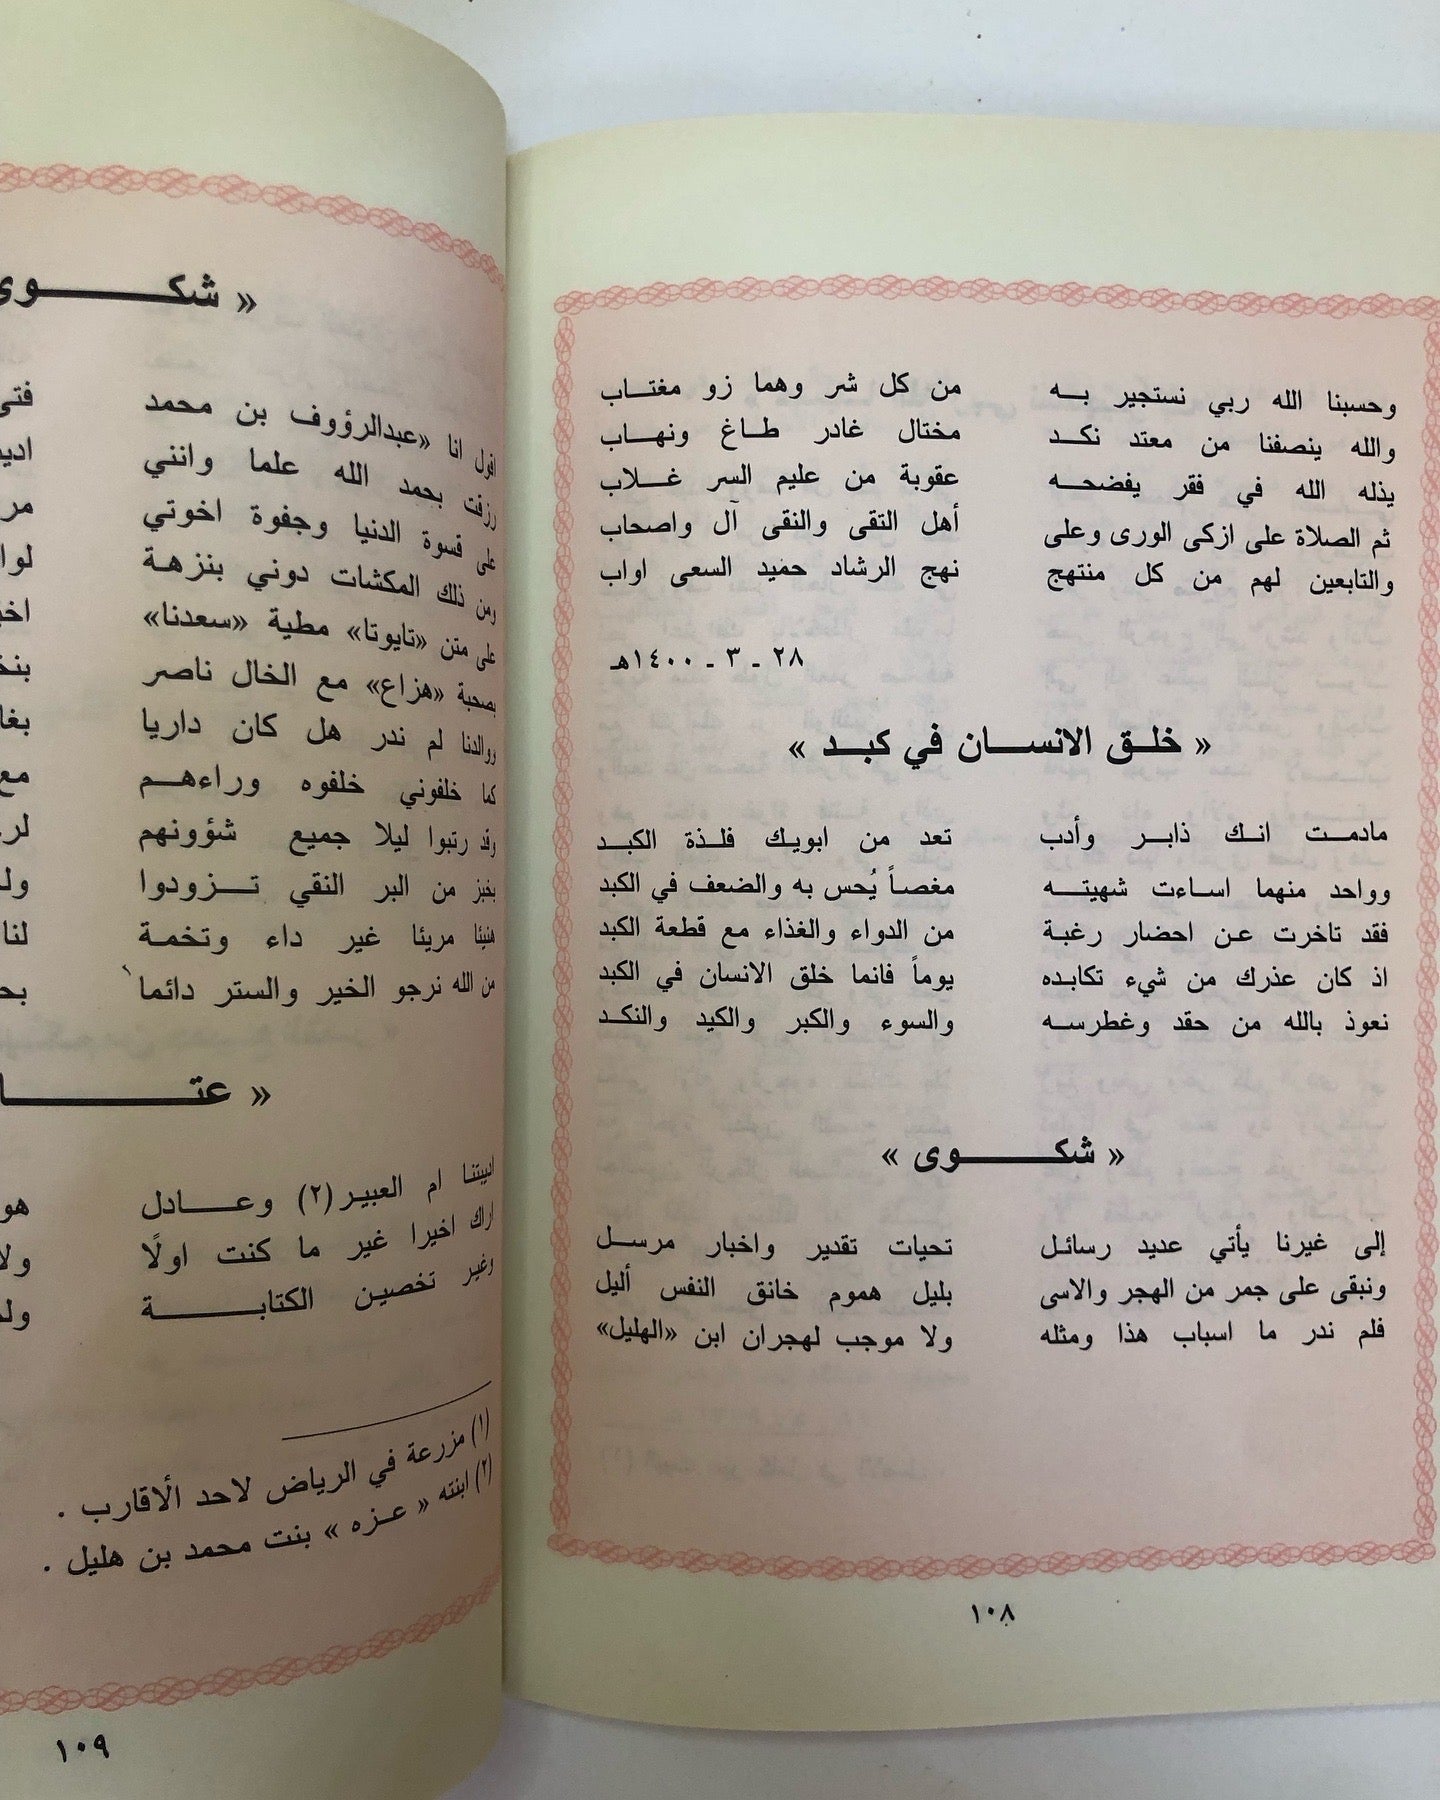 وحسبنا الله ربي نستجير بــه من كل شر وهما زو مغتــاب
والله ينصفنا من معتد نكــد مختال غادر طــاغ ونهــاب
يذله الله في فقر يفضحــه عقوبة من عليم السر غــلاب
ثم الصلاة على ازكى الورى وعلى أهل التقى والنقى آل واصحاب
والتابعين لهم من كل منتهج نهج الرشاد حميد السعى اواب
٢٨ ـ ٣ ـ ١٤٠٠هـ
« خلــق الانســـان في كبــد »
مادمــت انــك ذابــر وأدب تعد من ابويــك فلــذة الكبــد
وواحد منهما اســاءت شهيتــه مغصاً يُحس به والضعف في الكبد
فقد تاخرت عــن احضار رغبــة من الدواء والغذاء مع قطعة الكبد
اذ كان عذرك من شيء تكابده يوماً فانما خلق الانسان في الكبد
نعوذ بالله من حقد وغطرســه والسوء والكبر والكيد والنكــد
« شكـــــوى »
إلى غيرنا يأتي عديد رسائــل تحيات تقدير واخبار مرســل
ونبقى على جمر من الهجر والاسى بليل هموم خانق النفس أليل
فلم ندر ما اسباب هذا ومثله ولا موجب لهجران ابن «الهليل»
١٠٨
« شكـــــوى
اقول انا «عبدالرؤوف بن محمد فتى
رزقت بحمد الله علما وانني
على قسوة الدنيا وجفوة اخوتي
ومن ذلك المكشات دوني بنزهــة
على متن «تايوتا» مطية «سعدنا»
بصحبة «هزاع» مع الخال ناصر
ووالدنا لم ندر هل كان داريا
كما خلفوني خلفوه وراءهــم مع
وقد رتبوا ليلا جميع شؤونهم
بخبز من البر النقي تــزودوا
هنيئا مريئا غير داء وتخمــة لنا
من الله نرجو الخير والستر دائما
« عتـــــا
اديبتنا ام العبيــر (٢) وعــــادل
اراك اخيرا غير ما كنت اولًا
وغير تخصين الكتابــــــة
(١) مزرعة في الرياض لاحد الأقارب .
(٢) ابنته « عــزه » بنت محمد بن هليل .
١٠٩